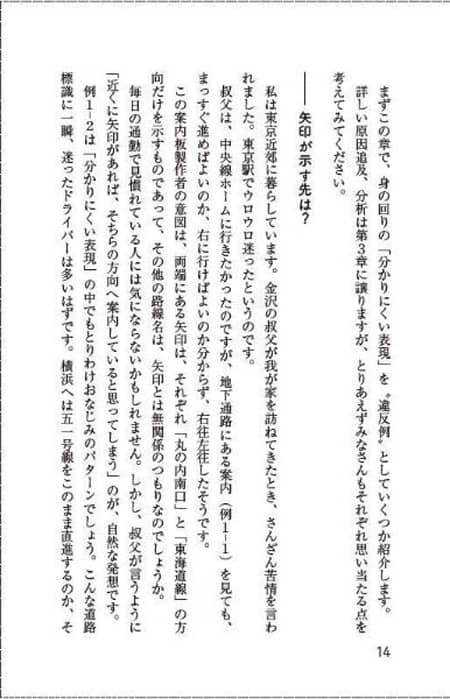 まずこの章で、身の回りの「分かりにくい表現」を〝違反例〟としていくつか紹介します。
詳しい原因追及、分析は第3章に譲りますが、とりあえずみなさんもそれぞれ思い当たる点を
考えてみてください。
――矢印が示す先は？
私は東京近郊に暮らしています。金沢の叔父が我が家を訪ねてきたとき、さんざん苦情を言わ
れました。東京駅でウロウロ迷ったというのです。
叔父は、中央線ホームに行きたかったのですが、地下通路にある案内（例1-1）を見ても、
まっすぐ進めばよいのか、右に行けばよいのか分からず、右往左往したそうです。
この案内板製作者の意図は、両端にある矢印は、それぞれ「丸の内南口」と「東海道線」の方
向だけを示すものであって、その他の路線名は、矢印とは無関係のつもりなのでしょうか。
毎日の通勤で見慣れている人には気にならないかもしれません。しかし、叔父が言うように
「近くに矢印があれば、そちらの方向へ案内していると思ってしまう」のが、自然な発想です。
例1-2は「分かりにくい表現」の中でもとりわけおなじみのパターンでしょう。こんな道路
標識に一瞬、迷ったドライバーは多いはずです。横浜へは五一号線をこのまま直進するのか、そ
14